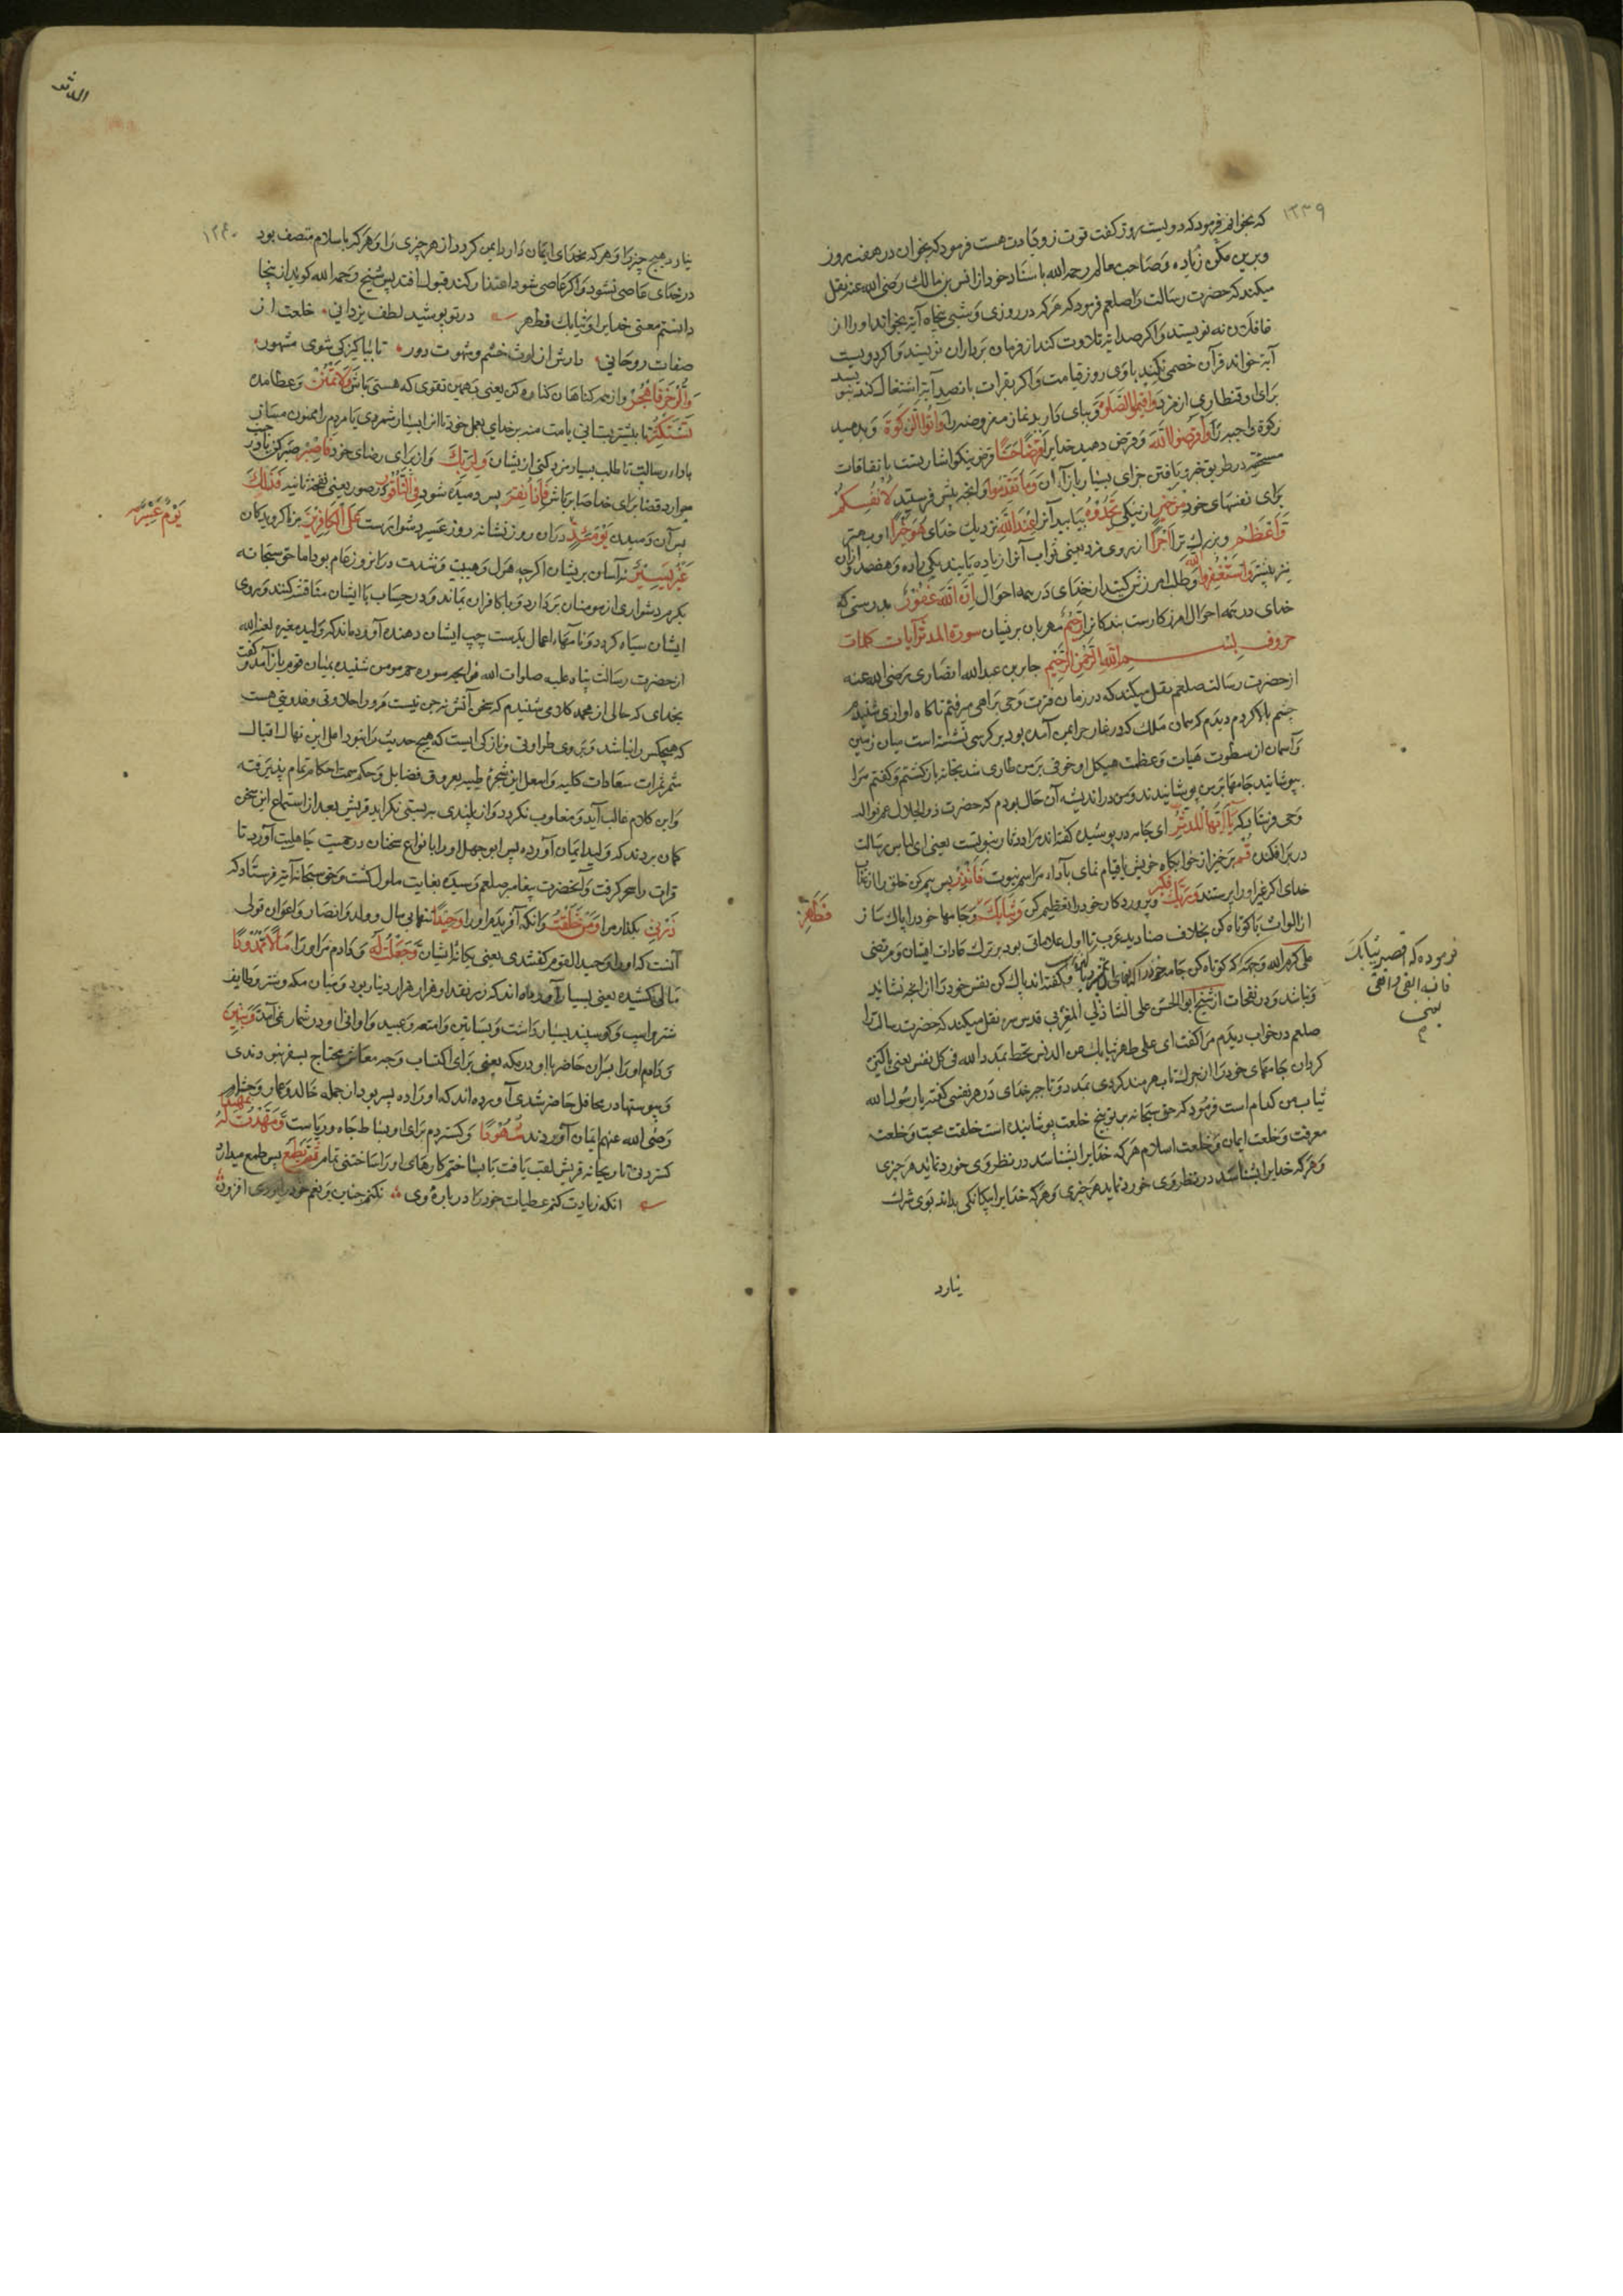 ١٢٣٩
که بخواند فرمود که دویست روز گفت قوت زیادت هست فرمود که بخوان در هفت روز
و برین مکن زیاده و صاحب معالم رحمه الله باسناد خود از انس بن مالک رضی الله عنه نقل
میکند که حضرت رسالت را صلعم فرمود که هرکه در روزی و شبی پنجاه آیة بخواند او را از
غافلان نه نویسند و اکر صد آیة تلاوت کند از فرمان برداران نویسند و اکر دویست
آیة خواند قرآن خصمی نکند با وی روز قیامت و اکر بقرات پانصد آیة اشتغال کند بنویسد
برای او قنطاری از مزد وَاَقِیمُوا الصَّلٰوةَ و بپای دارید نماز مفروضه را وَاٰتُوا الزَّکٰوةَ و بدهید
زکوة واجبه را وَاَقْرِضُوا اللهَ و قرض دهید خدایرا قَرْضًا حَسَنًا قرض نیکو اشارتست بانفاقات
مستحبه در طریق خیر و یافتن جزای بسیار بازاء آن وَمَا تُقَدِّمُوا و آنچه پیش فرستید لِاَنْفُسِکُمْ
برای نفسهای خود مِنْ خَیْرٍ از نیکی تَجِدُوهُ بیابید آنرا عِنْدَ اللهِ نزدیک خدای هُوَ خَیْرًا او بهتر
وَاَعْظَمَ و بزرک تر اَجْرًا از روی مزد یعنی ثواب آنرا زیاده یابید یکی را ده و هفصد از آن
نیز بیشتر وَاسْتَغْفِرُوا اللهَ و طلب امرزش کنید از خدای در همه احوال اِنَّ اللهَ غَفُورٌ بدرستی که
خدای در همه احوال امرزکارست بندکانرا رَحِیمٌ مهربان بر ایشان سورة المدثر آیات کلمات
حروف بسم الله الرحمن الرحیم جابر بن عبد الله انصاری رضی الله عنه
از حضرت رسالت صلعم نقل میکند که در زمان فترت وحی براهی میرفتم ناکاه اوازی شنیدم
چشم بالا کردم دیدم که همان ملک که در غار حرا بمن آمده بود بر کرسی نشسته است میان زمین
و آسمان از سطوت هیات و عظمت هیکل او خوفی بر من طاری شد بخانه بازکشتم و کفتم مرا
بپوشانید جامها بر من پوشانیدند و من در اندیشه آن حال بودم که حضرت ذو الجلال عم نواله
وحی فرستاد که یَا اَیُّهَا الْمُدَّثِّرُ ای جامه در پوشیده کفته اند مراد دثار نبوتست یعنی ای لباس رسالت
در بر افکنده قُمْ برخیز از خوابکاه خویش یا قیام نمای بآداء مراسم نبوت فَاَنْذِرْ پس بیم کن خلق را از عذاب
خدای اکر غیر او را پرستند وَرَبَّکَ فَکَبِّرْ و پروردکار خود را تعظیم کن وَثِیَابَکَ و جامهای خود را پاک ساز
فَطَهِّرْ
از الواث یا کوتاه کن بخلاف صنادید عرب تا اول علاماتی بود بر ترک عادات ایشان و مرتضی
علی کرم الله وجهه که کوتاه کن جامه خود را و کفته اند پاک کن نفس خود را از انچه نشاید
و نباشد و در نفحات از شیخ ابو الحسن علی الشاذلی المغربی قدس سره نقل میکند که حضرت رسالت را
صلعم در خواب دیدم مرا کفت ای علی طهر ثیابک من الدنس تحظ بمدد الله فی کل نفس یعنی پاکیزه
کردان جامهای خود را از چرک تا بهره مند کردی بمدد و تاجر خدای در هر نفسی کفتم یا رسول الله
ثیاب من کدام است فرمود که حق سبحانه بر تو پنج خلعت پوشانیده است خلعت محبت و خلعت
معرفت و خلعت ایمان و خلعت اسلام هرکه خدایرا بشناسد در نظر وی خورد نماید هر چیزی
و هرکه خدایرا بشناسد در نظر وی خورد نماید هر چیزی و هرکه خدایرا بیکانکی بداند بوی شرک
فرموده که اقصر ثیابک
فانه انقی و اتقی
نیارد
المدثر
١٢٤٠
نیارد بهیچ چیز را و هرکه بخدای ایمان دارد ایمن کردد از هر چیزی را و هرکه باسلام متصف بود
در خدای عاصی نشود و اکر عاصی شود اعتذار کند قبول افتد پس شیخ رحمه الله کوید از نیجا
دانستم معنی خدایرا و ثیابک فطهر در تو پوشید لطف یزدانی خلعت از
صفات روحانی دارش از لوث خشم و شهوت دور تا بپاکیزکی شوی مشهور
وَالرُّجْزَ فَاهْجُرْ و از همه کناهان کناره کن یعنی بر همین تقوی که هستی باش وَلَا تَمْنُنْ و عطا مده
تَسْتَکْثِرُ تا بیشتر بستانی یا منت منه بر خدای بعمل خود تا انرا بسیار شمری یا مردم را ممنون مساز
باداء رسالت تا طلب بسیار مزد کنی از یشان وَلِرَبِّکَ و از برای رضای خود فَاصْبِرْ صبر کن
موارد قضا برای خدا صابر باش فَاِذَا نُقِرَ پس دمیده شود فِی النَّاقُورِ در صور یعنی نفخه ثانیه فَذٰلِکَ
پس آن دمیدن یَوْمَئِذٍ در آن روز نشانه روز عسیر دشوار هست عَلَی الْکَافِرِینَ بر ناکرویدکان
یَوْمٌ عَسِیرٌ
غَیْرُ یَسِیرٍ نه آسان بر یشان اکرچه هول و هیبت و شدت در آنروز عام بود اما حق سبحانه
بکرم دشواری از مومنان بردارد و بر ما کافران بماند و در حساب با ایشان مناقشه کنند و روی
ایشان سیاه کردد و نامهاء اعمال بدست چپ ایشان دهند آورده اند که ولید مغیره لعنه الله
از حضرت رسالت پناه علیه صلوات الله فواتح سوره حم مومن شنیده بمیان قوم باز آمد و کفت
بخدای که حالی از محمد کلامی شنیدم که سخن آنس و جن نیست مر او را حلاوتی و عذوبتی هست
که هیچکس را نباشد و بر وی طراوتی و تازکی است که هیچ حدیث را نبود اعلی این نهال اقبال
مثمر ثمرات سعادات کلیه و اسفل این شجره طیبه بعروق فضایل و حکم سمت احکام تمام پذیرفته
و این کلام غالب آید و مغلوب نکردد و از بلندی به پستی نکراید قریش بعد از استماع این سخن
کمان بردند که ولید ایمان آورده پس ابو جهل او را بانواع سخنان در حمیت جاهلیت آورد تا
قرآن را سحر کرفت و آنحضرت پیغامبر صلعم رسیده بغایت ملول کشت و حق سبحانه آیة فرستاد که
ذَرْنِی بکذار مرا وَمَنْ خَلَقْتُ و آنکه آفریدم او را وَحِیدًا تنها بی مال و ولد و انصار و اعوان قولی
آنست که او را وحید القوم کفتندی یعنی یکانه ایشان وَجَعَلْتُ لَهُ و دادم مر او را مَالًا مَمْدُودًا
مالی کشیده یعنی بسیار آورده اند که زر نقد او هزار هزار دینار بود و میان مکه و شتر و طایف
شتر و اسپ و کوسپند بسیار داشت و بساتین و امتعه و عبید و اوانی او در شمار نمی آمد وَبَنِینَ
و دادم او را پسران حاضر با او در مکه یعنی برای اکتساب وجه معاش محتاج بسفر نبودندی
و پیوسته با در محافل حاضر شدی آورده اند که او را ده پسر بود از جمله خالد و عمار و هشام
رضی الله عنهم ایمان آوردند شُهُودًا و کستردم برای او بساط جاه و ریاست وَمَهَّدْتُ لَهُ تَمْهِیدًا
کستردنی تا ریحانه قریش لقب یافت یا بساختم کارهای او را ساختنی تمام ثُمَّ یَطْمَعُ پس طمع میدارد
انکه زیادت کنم عطیات خود را در باره وی نکنم چنین و نعم خود را بوی افزون